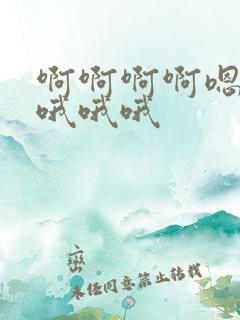 啊啊啊啊嗯
哦哦哦
峦
未经同意禁止转载